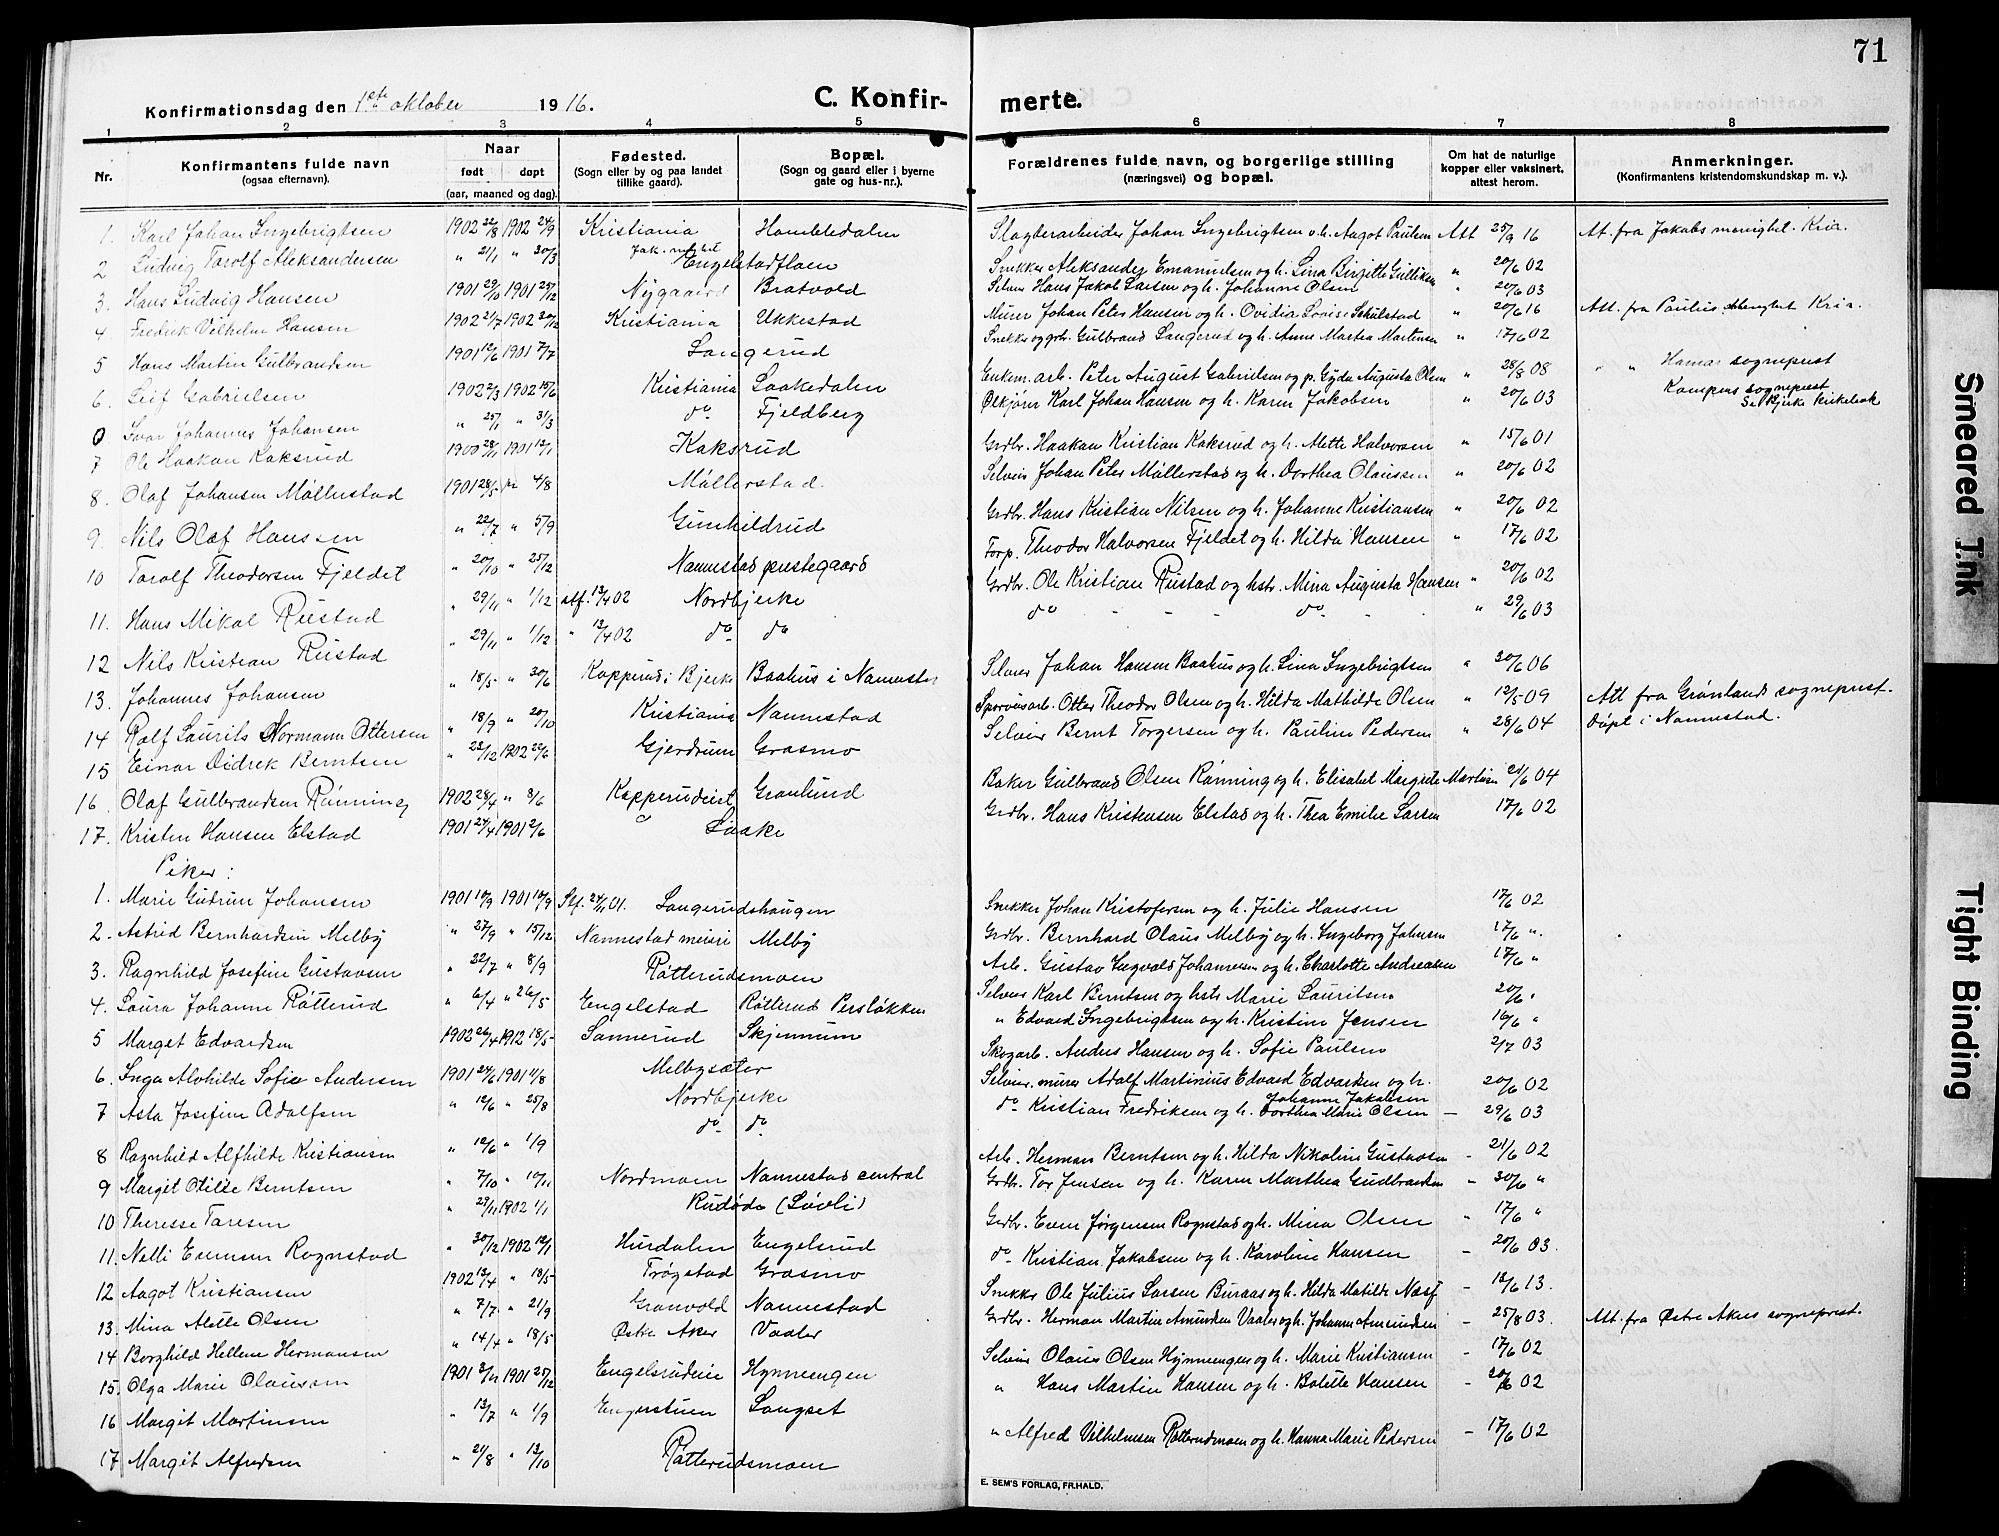 71
Konfirmationsdag den 1ste oktober 1916.
C. Konfirmerte.
1 2 3 4 5 6 7 8
Nr.
Konfirmantens fulde navn
(ogsaa efternavn).
Naar
født døpt
(aar, maaned og dag).
Fødested.
(Sogn eller by og paa landet
tillike gaard).
Bopæl.
(Sogn og gaard eller i byerne
gate og hus-nr.).
Forældrenes fulde navn, og borgerlige stilling
(næringsvei) og bopæl.
Om hat de naturlige
kopper eller vaksinert,
attest herom.
Anmerkninger.
(Konfirmantens kristendomskundskap m. v.).
1. Karl Johan Ingebrigtsen 1902 22/8 1902 24/9 Kristiania Jak. menighet Hombledalen Slagterarbeider Johan Ingebrigtsen o.h. Aagot Paulsen Att 25/9 16 At. fra Jakobs menighet. Kria.
2 Ludvig Tarolf Aleksandersen " 21/1 " 30/3 Engelstadfloen Snekker Aleksander Emanuelsen og h. Lina Birgitte Gulliksen " 20/6 02
3. Hans Ludvig Hansen 1901 29/10 1901 25/12 Nygaard Bratvold Selveier Hans Jakob Larsen og h. Johanne Olsen " 20/6 03
4 Fredrik Vilhelm Hansen 1902 21/7 1902 30/12 Kristiania Ukkestad Murer Johan Peter Hansen og h. Ovidia Lovise Schulstad " 20/6 16 Att. fra Paulus menighet Kria.
5 Hans Martin Gulbrandsen 1901 12/6 1901 7/7 Langerud Snekker og grb. Gulbrand Langerud og h. Anne Martea Martinsen " 17/6 02
6. Leif Gabrielsen 1902 2/3 1902 15/6 Kristiania Laakedalen Enkem. arb. Peter August Gabrielsen og p. Gyda Augusta Olsen " 28/8 08 " " Hamar sogneprest
0 Ivar Johannes Johansen " 25/1 " 31/3 do Fjeldberg Ølkjører Karl Johan Hansen og h. Karen Jakobsen " 20/6 03 Kampens sogneprest Se Bjerke kirkebok
7 Ole Haakan Kaksrud 1900 28/11 1901 13/1 Kaksrud Grdbr. Haakan Kristian Kaksrud og h. Alette Halvorsen " 15/6 01
8. Olaf Johansen Møllerstad 1901 28/5 4/8 Møllerstad. Selveier Johan Peter Møllerstad og h. Dorthea Olaussen " 20/6 02
9. Nils Olaf Hanssen " 22/7 " 5/9 Gunhildrud Grdbr. Hans Kristian Nilsen og h. Johanne Kristiansen " 20/6 02
10 Tarolf Theodorsen Fjeldet " 20/10 " 25/12 Nannestad prestegaard Forp. Theodor Halvorsen Fjeldet og h. Hilda Hansen " 17/6 02
11. Hans Mikal Rustad " 29/11 " 1/12 stf. 13/4 02 Nordbjerke Grdbr. Ole Kristian Rustad og hstr. Mina Augusta Hansen " 20/6 02
12 Nils Kristian Rustad " 29/11 " 1/12 " 13/4 02 do do do - - - do - " 29/6 03
13. Johannes Johansen " 18/5 " 30/6 Kopperud i Bjerke Baahus i Nannestad Selveier Johan Hansen Baahus og h. Lina Ingebrigtsen " 30/6 06
14 Rolf Laurits Normann Ottersen " 18/9 " 20/10 Kristiania Nannestad Sporveisarb. Otter Theodor Olsen og h. Hilda Mathilde Olsen " 12/5 09 Att fra Grønlands sogneprest.
15 Einar Didrek Berntsen " 23/12 1902 22/6 Gjerdrum Grasmo Selveier Bernt Torgersen og h. Pauline Pedersen " 28/6 04 Døpt i Nannestad.
16. Olaf Gulbrandsen Rønning 1902 28/4 " 8/6 Kopperudeiet Granlund Baker Gulbrand Olsen Rønning og h. Elisabet Margrete Martinsen 21/6 04
17. Kristen Hansen Elstad 1901 24/4 1901 2/6 Laake Grdbr. Hans Kristensen Elstad og h. Thea Emilie Larsen 17/6 02
Piker:
1. Marie Gudrun Johansen 1901 10/9 1901 10/9 Stf. 24/11 01. Langerudshaugen Snekker Johan Kristofersen og h. Julie Hansen 17/6 02
2. Astrid Bernhardsen Melby " 27/9 " 15/12 Nannestad meieri Melby Grdbr. Bernhard Olaus Melby og h. Ingeborg Johnsen 17/6 ".
3. Ragnhild Josefine Gustavsen " 22/7 " 8/9 Røtterudsmoen Arb. Gustav Ingvald Johannesen og h. Charlotte Andreasen 17/6 "
4. Laura Johanne Røtterud " 6/4 " 26/5 Engelstad Røtterud Persløkken Selveier Karl Berntsen og hstr Marie Lauritsen 20/6 "
5 Marget Edvardsen 1902 26/4 1912 18/5 Sannerud Skjennum " Edvard Ingebrigtsen og h. Kristine Jensen 16/6 "
6. Inga Alvhilde Sofie Andersen 1901 24/6 1901 11/8 Melbysæter Skogarb. Anders Hansen og h. Sofie Paulsen 2/7 03
7 Asta Josefine Adolfsen " 12/6 " 25/8 Nordbjerke Selveier, murer Adolf Martinius Edvard Edvardsen og h. Johanne Jakobsen 20/6 02
8 Ragnhild Alfhilde Kristiansen " 12/6 " 1/9 do do do Kristian Fredriksen og h. Dorthea Marie Olsen - 29/6 03
9 Margit Otilie Berntsen " 7/10 " 10/11 Nordmoen Nannestad central Arb. Herman Berntsen og h. Hilda Nikoline Gustavsen - 21/6 02
10 Theresse Taresen " 29/11 1902 1/1 Rudøde (Løvli) Grdbr. Tor Jensen og h. Karen Marthea Gudbrandsen - 30/6 "
11. Nelli Evensen Rognstad " 30/12 1902 12/1 Hurdalen Engelsrud Grdbr. Even Jørgensen Rognstad og h. Mina Olsen " 17/6 "
12 Aagot Kristiansen 1902 13/4 " 18/5 Trøgstad Grasmo do Kristian Jakobsen og h. Karoline Hansen - 20/6 03.
13. Mina Alette Olsen " 7/7 " 21/9 Granvold Nannestad Snekker Ole Julius Larsen Buraas og h. Hilda Matilde Næss - 18/6 13.
14 Borghild Hellene Hermansen " 14/4 " 18/5 Østre Aker Vaaler Grdbr. Herman Martin Amundsen Vaaler og h. Johanne Amundsen - 25/8 03. Att. fra Østre Akers sogneprest.
15. Olga Marie Olaussen 1901 3/11 1901 25/12 Engelsrudeie Hynneengen Selveier Olaus Olsen Hynneengen og h. Marie Kristiansen - 17/6 02
16 Margit Martinsen " 13/7 " 1/9 Engerstuen Langset " Hans Martin Hansen og h. Bolette Hansen - 20/6 02
17 Margit Alfredsen " 21/8 " 13/10 Røtterudsmoen " Alfred Vilhelmsen Røtterudsmoen og h. Hanna Marie Pedersen - 17/6 02
E. SEM'S FORLAG, FR.HALD.
Smeared Ink
Tight Binding